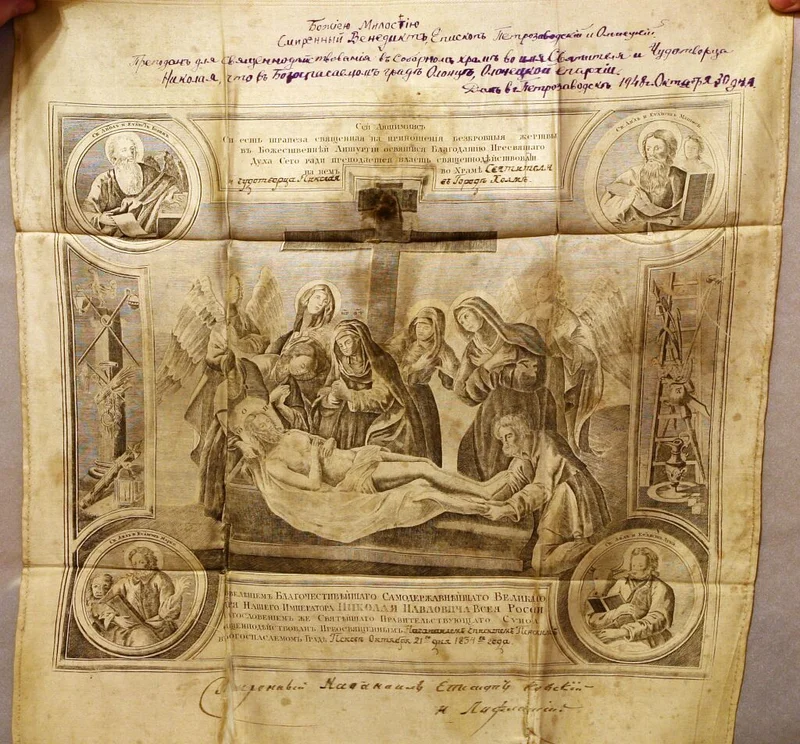 Божiею Милостiю
Смиренный Венедиктъ Епископъ Петрозаводскiй и Олонецкiй.
Преподанъ для Священнодѣйствованiя въ соборномъ храмѣ во имя Святителя и Чудотворца
Николая, что въ Богоспасаемомъ градѣ Олонцѣ, Олонецкой епархiи.
Данъ въ г. Петрозаводскѣ 1948 г. Октября 30 дня
Сей Антиминсъ
Си есть трапеза священная на приношенiя безкровныя жертвы
въ Божественнѣй Литургiи освятися Благодатiю Пресвятаго
Духа Сего ради преподается власть священнодѣйствовати
на немъ во Храмѣ Святителя
чудотворца Николая въ Городѣ Холмѣ.
Св. Апкъ и Еѵлистъ Iоанъ
Св. Апкъ и Еѵлистъ Матѳей
Св. Апкъ и Еѵлистъ Марко
Св. Апкъ и Еѵлистъ Лука
Повелѣнiемъ Благочестивѣйшаго Самодержавнѣйшаго Великаго
Государя Нашего Императора НИКОЛАЯ ПАВЛОВИЧА Всея Россiи
Благословенiемъ же Святѣйшаго Правительствующаго Сѵнода
Священнодѣйствованъ Преосвященнымъ Наѳанаиломъ Епископомъ Псковскимъ
въ Богоспасаемомъ Градѣ Псковѣ Октября 21го дня 1834го года.
Смиренный Наѳанаилъ Епископъ Псковскiй
и Лифляндскiй